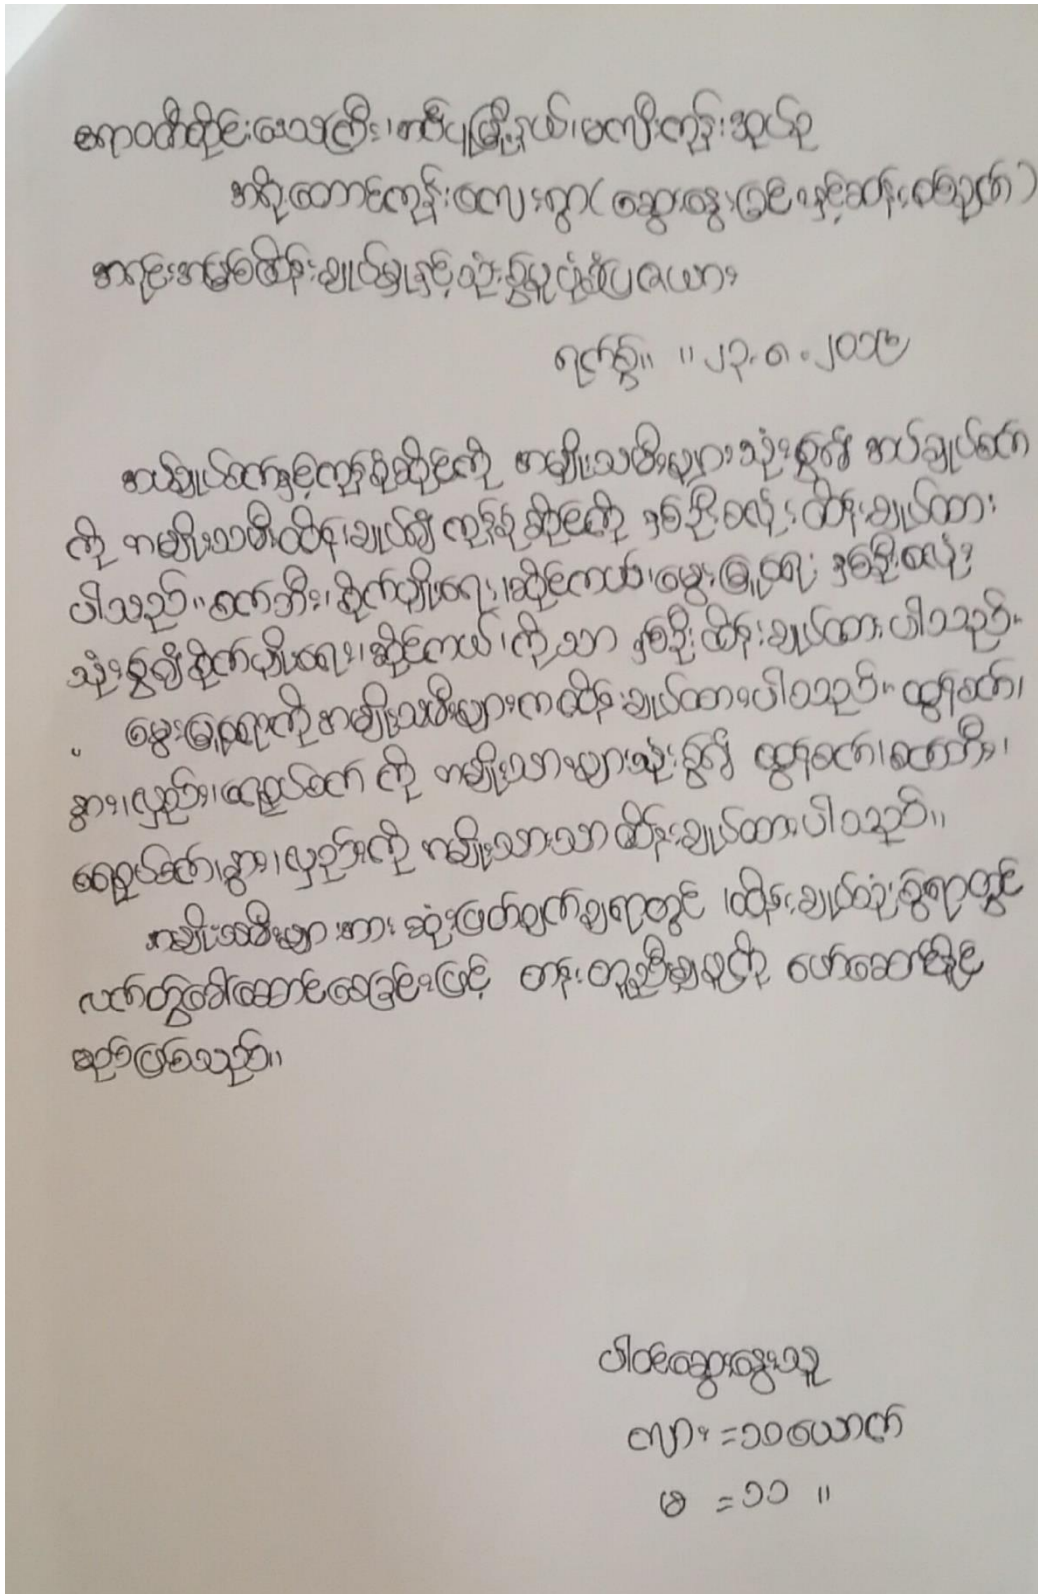 ဧရာဝတီတိုင်းဒေသကြီး၊ ဘိုကလေးမြို့နယ်၊ မလိုးကုန်းအုပ်စု
အစိုးတောင်ကုန်းလေးရွာ (ဆွေးနွေးခြင်းနှင့်ဆန်းစစ်ချက်)
အရင်းအမြစ်ထိန်းချုပ်မှုနှင့်သုံးစွဲမှုပုံစံပြဇယား
ရက်စွဲ။ ။၂၃.၈.၂၀၁၉
အပ်ချုပ်စက်နှင့်ကုန်စုံဆိုင်ကို အမျိုးသမီးများသုံးစွဲ၍ အပ်ချုပ်စက်
ကို အမျိုးသမီးထိန်းချုပ်၍ ကုန်စုံဆိုင်ကို နှစ်ဦးစလုံးထိန်းချုပ်ထား
ပါသည်။ စက်ဘီး၊ စိုက်ပျိုးရေး၊ ဆိုင်ကယ်၊ မွေးမြူရေး နှစ်ဦးစလုံး
သုံးစွဲ၍ စိုက်ပျိုးရေး၊ ဆိုင်ကယ်၊ ကိုသာ နှစ်ဦးထိန်းချုပ်ထားပါသည်။
မွေးမြူရေးကိုအမျိုးသမီးများကထိန်းချုပ်ထားပါသည်။ ထွန်စက်၊
နွား၊ လှည်း၊ ရေစုပ်စက် ကို အမျိုးသားများသုံးစွဲ၍ ထွန်စက်၊ စက်ဘီး၊
ရေစုပ်စက်၊ နွား၊ လှည်းကို အမျိုးသားသာထိန်းချုပ်ထားပါသည်။
အမျိုးသမီးများအား ဆုံးဖြတ်ချက်ချရာတွင် ၊ထိန်းချုပ်သုံးစွဲရာတွင်
လက်တွဲခေါ်ဆောင်စေခြင်းဖြင့် တန်းတူညီမျှမှုကို ဖော်ဆောင်နိုင်
မည်ဖြစ်သည်။
ပါဝင်ဆွေးနွေးသူ
ကျား =၁၀ယောက်
မ =၁၁ ။